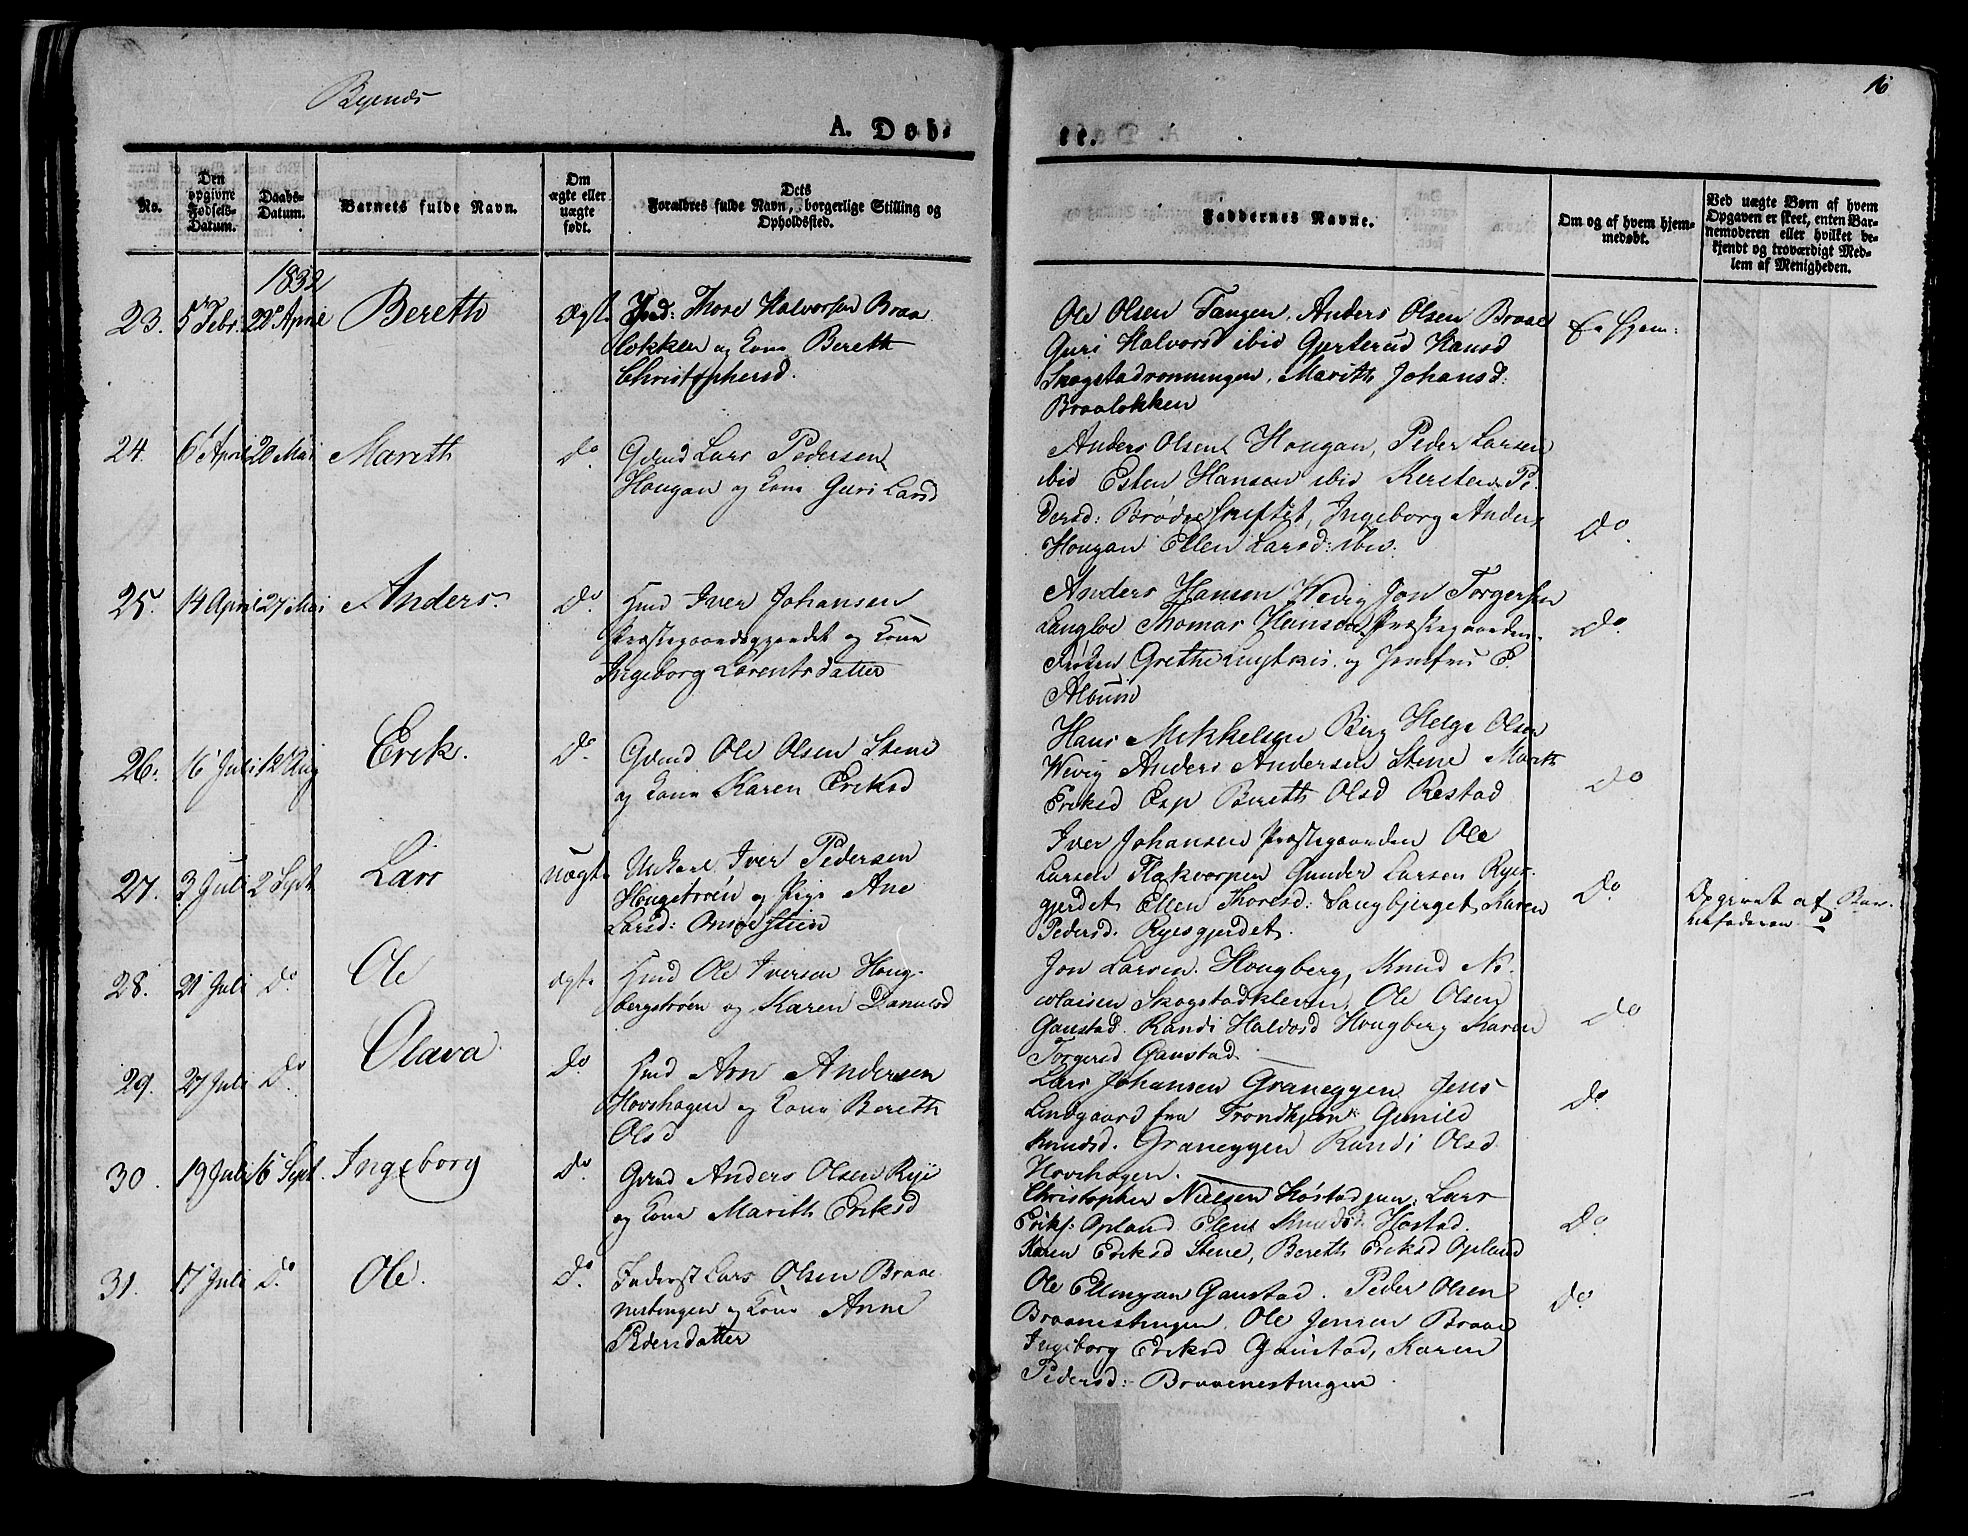 Byenæs
16
A. Døb-
te.
No.
Den opgivne Fødsels-Datum.
Daabs-Datum.
Barnets fulde Navn.
Om ægte eller uægte født.
Dets Forældres fulde Navn, borgerlige Stilling og Opholdssted.
Faddernes Navne.
Om og af hvem hjem-medøbt.
Ved uægte Børn af hvem Opgaven er skeet, enten Bar-nemoderen eller hvilket be-kjendt og troværdigt Med-lem af Menigheden.
1832
23. 5 Febr: 20 April Bereth Ægt. Ind: Thore Halvorsen Braa
løkken og Kone Bereth
Christophersd.
Ole Olsen Tangen, Anders Olsen Braae
Guri Halvorsd ibid Gjertrud Hansd
Skogstadrønningen, Marith Johansd:
Braaløkken
24. 6 April 20 Mai Mareth do Gdmd Lars Pedersen
Hougan og Kone Guri Larsd
Anders Olsen Hougan, Peder Larsen
ibid Esten Hansen ibid Kersten Pe
dersd: Brødreskiftet, Ingeborg Anders
Hougan Ellen Larsd: ibid.
do
25. 14 April 27 Mai Anders. do. Hmd Iver Johansen
Præstegaardsgjerdet og Kone
Ingeborg Lorentsdatter
Anders Hansen Wevig Jon Torgersen
Langløe Thomas Hansen Præstegaarden.
Frøken Grethe og Jomfru E.
do.
26. 16 Juli 12 Aug Erik. do. Gdmd Ole Olsen Stene
og Kone Karen Eriksd
Hans Mikkelsen Berg Helge Olsen
Wevig Anders Andersen Stene Marith
Eriksd Esp Bereth Olsd Restad
do
27. 3 Juli 2 Sept Lars Uægt. Unkarl Iver Pedersen
Hougstrøen og Pige Ane
Larsd:
Iver Johansen Præstegaarden Ole
Larsen Flakvorpen Gunder Larsen Ryes-
gjerdet Ellen Thoresd: Langbjerget, Karen
Pedersd. Ryesgjerdet.
do
Opgivet af Bar-
nefaderen
28. 21 Juli do. Ole ægt. Hmd Ole Iversen Houg-
bergstrøen og Karen Danielsd
Jon Larsen Hougberg, Knud Ni-
colaisen Skogstadkleven, Ole Olsen
Gaustad. Randi Halvorsd Hougberg Karen
Torgersd Gaustad.
do
29. 27 Juli do. Olava do Hmd Arn Andersen
Hovshagen og Kone Bereth
Olsd
Lars Johansen Graneggen Jens
Lindgaard fra Trondhjem Gunild
Knudsd. Graneggen Randi Olsd
Hovshagen.
do.
30. 19 Juli 16 Sept. Ingeborg do. Gdmd Anders Olsen Rye
og Kone Marith Eriksd
Christopher Nielsen Høstad Lars
Eriks: Opland Elen Knudsd: Høstad.
Karen Eriksd Stene, Bereth Eriksd Opland
do
31. 17 Juli do. Ole. do. Inderst Lars Olsen Braae-
nestingen og Kone Anne
Pedersdatter
Ole Ellingsen Gaustad. Peder Olsen
Braaenestingen. Ole Jensen Braae
Ingeborg Eriksd Gaustad, Karen
Pedersd: Braaenestingen
do.